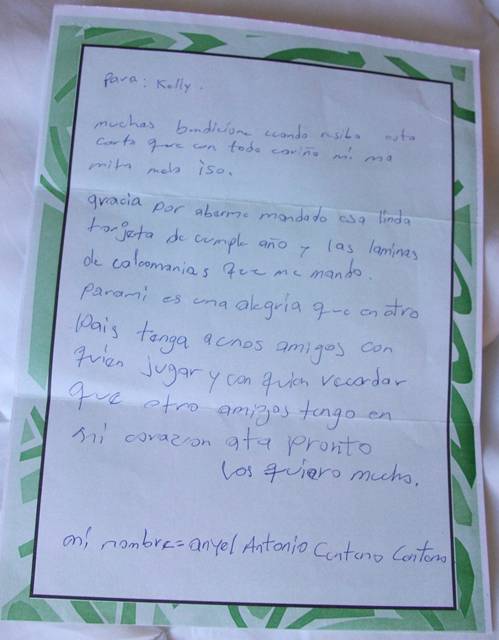 Para: Kelly.
muchas bendicione cuando resiba esta
carta que con todo cariño mi ma
mita mela iso.
gracia por aberme mandado esa linda
tarjeta de cumple año y las laminas
de calcomanias que me mando.
Parami es una alegria que en otro
Pais tenga aunos amigos con
quien jugar y con quien recordar
que otro amigos tengo en
mi corazon ata pronto
los quiero mucho.
mi nombre = anyel Antonio